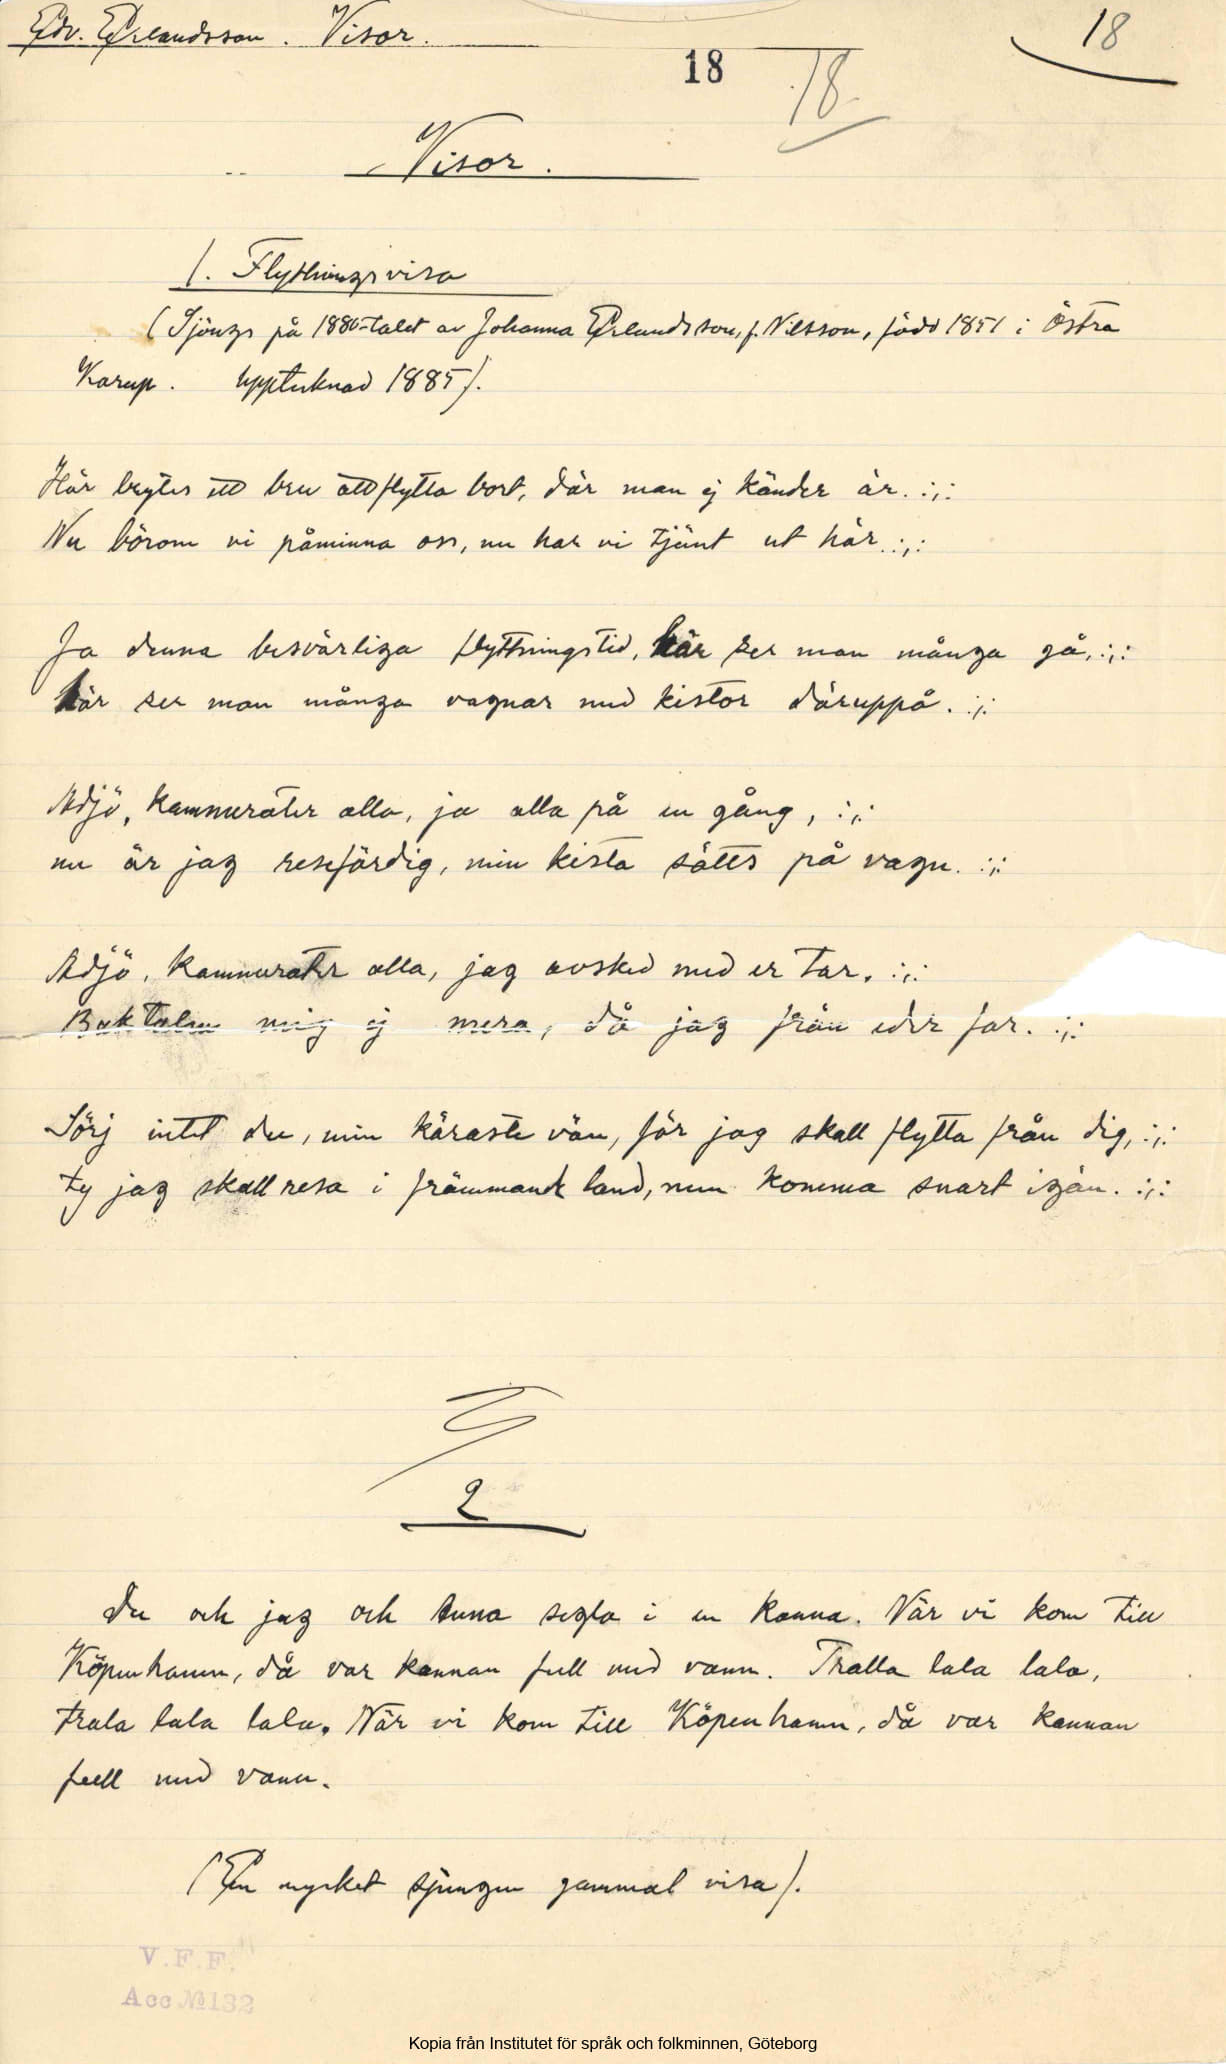 Edv. Erlandsson. Visor.
18
18
18
Visor.
1. Flyttningsvisa
(Sjöngs på 1880-talet av Johanna Erlandsson, f. Nilsson, född 1851 i Östra
Karup. Upptecknad 1885).
Här brytes ett bru att flytta bort, där man ej känder är. :,:
Nu börom vi påminna oss, nu har vi tjänt ut här. :,:
Ja denna besvärliga flyttningstid, här ser man många gå, :,:
här ser man många vagnar med kistor däruppå. :,:
Adjö, kamrater alla, ja alla på en gång, :,:
nu är jag resefärdig, min kista sättes på vagn. :,:
Adjö, kamrater alla, jag avsked med er tar. :,:
Baktalen mig ej mera, då jag från eder far. :,:
Sörj intet du, min käraste vän, för jag skall flytta från dig, :,:
ty jag skall resa i främmande land, men komma snart igän. :,:
2
Du och jag och Anna segla i en kanna. När vi kom till
Köpenhamn, då var kannan full med vann. Tralla lala lala,
trala lala lala. När vi kom till Köpenhamn, då var kannan
full med vann.
(En mycket sjungen gammal visa).
V.F.F.
Acc №132
Kopia från Institutet för språk och folkminnen, Göteborg